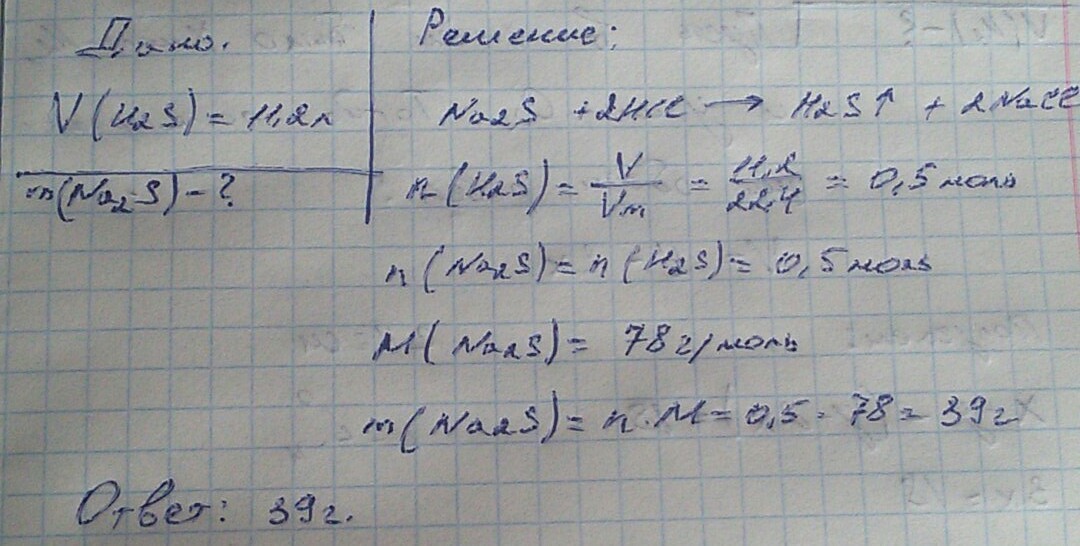 Дано.
V(H2S) = 11,2л
m(Na2S) - ?
Решение:
Na2S + 2HCl → H2S↑ + 2NaCl
n(H2S) = V/Vm = 11,2/22,4 = 0,5 моль
n(Na2S) = n(H2S) = 0,5 моль
M(Na2S) = 78 г/моль
m(Na2S) = n · M = 0,5 · 78 = 39 г
Ответ: 39 г.